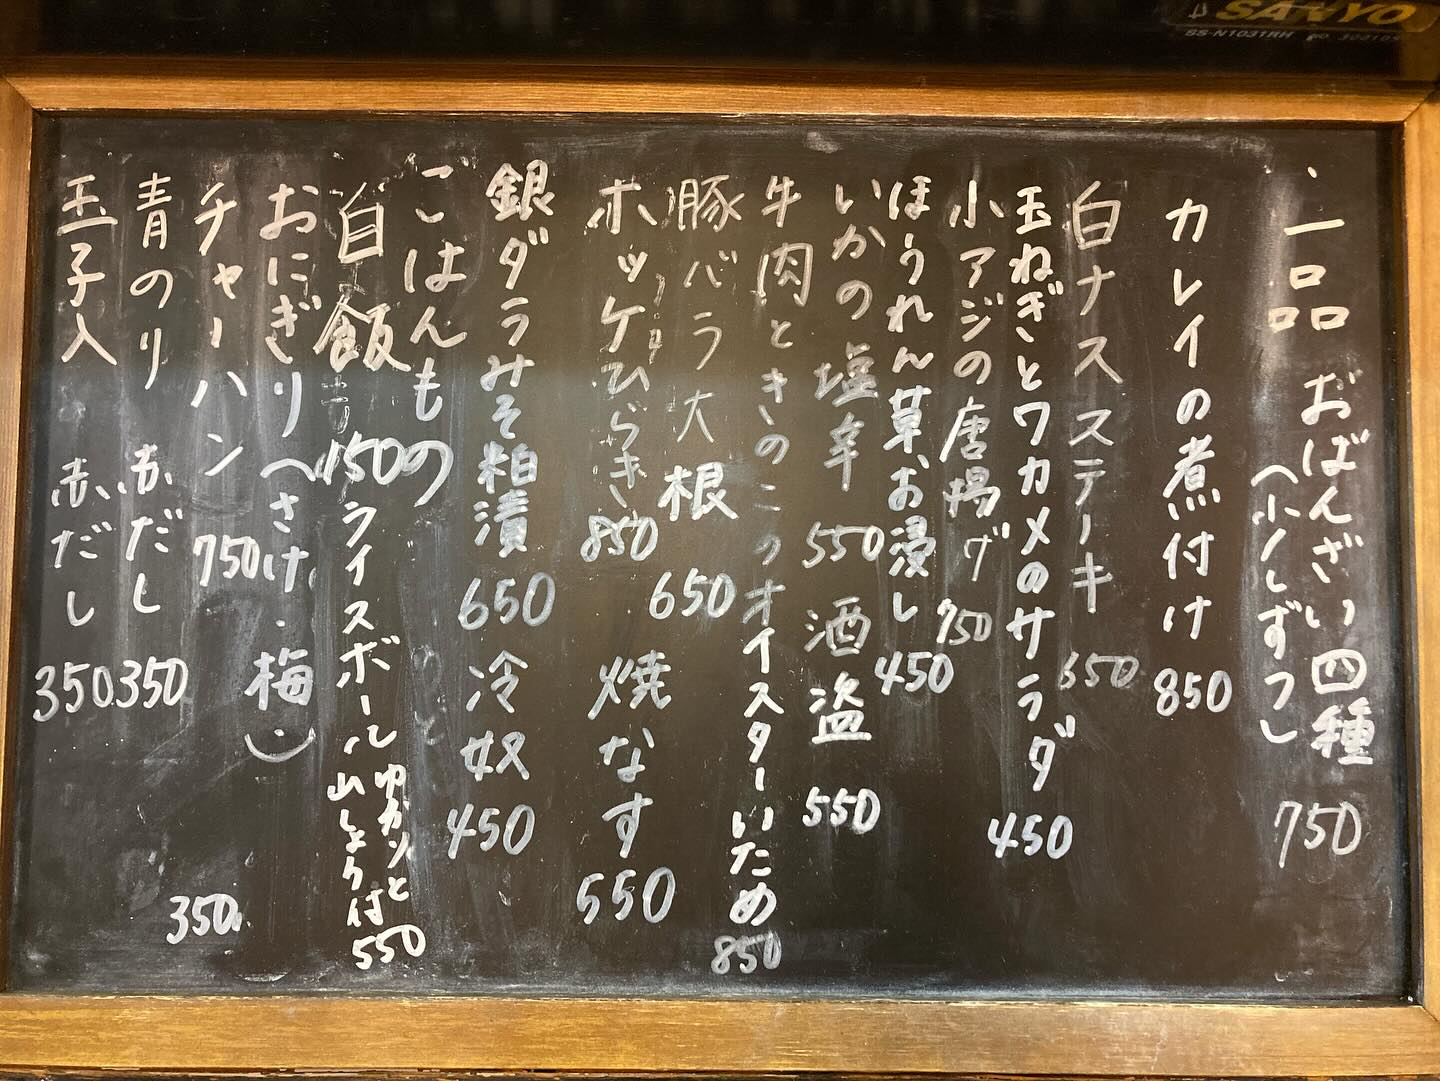 一品
おばんざい四種 750
(少しずつ)
カレイの煮付け 850
白ナスステーキ 650
玉ねぎとワカメのサラダ 450
小アジの唐揚げ 750
ほうれん草お浸し 450
いかの塩辛 550 酒盗 550
牛肉ときのこのオイスターいため 850
豚バラ大根 650
ホッケひらき 850 焼なす 550
銀ダラみそ粕漬 650 冷奴 450
ごはんもの
白飯 150 ライスボール ゆかりと
山しょう付 550
おにぎり(さけ・梅) 350
チャーハン 750
青のり 赤だし 350
玉子入 赤だし 350
SANYO
SS-N1031RH